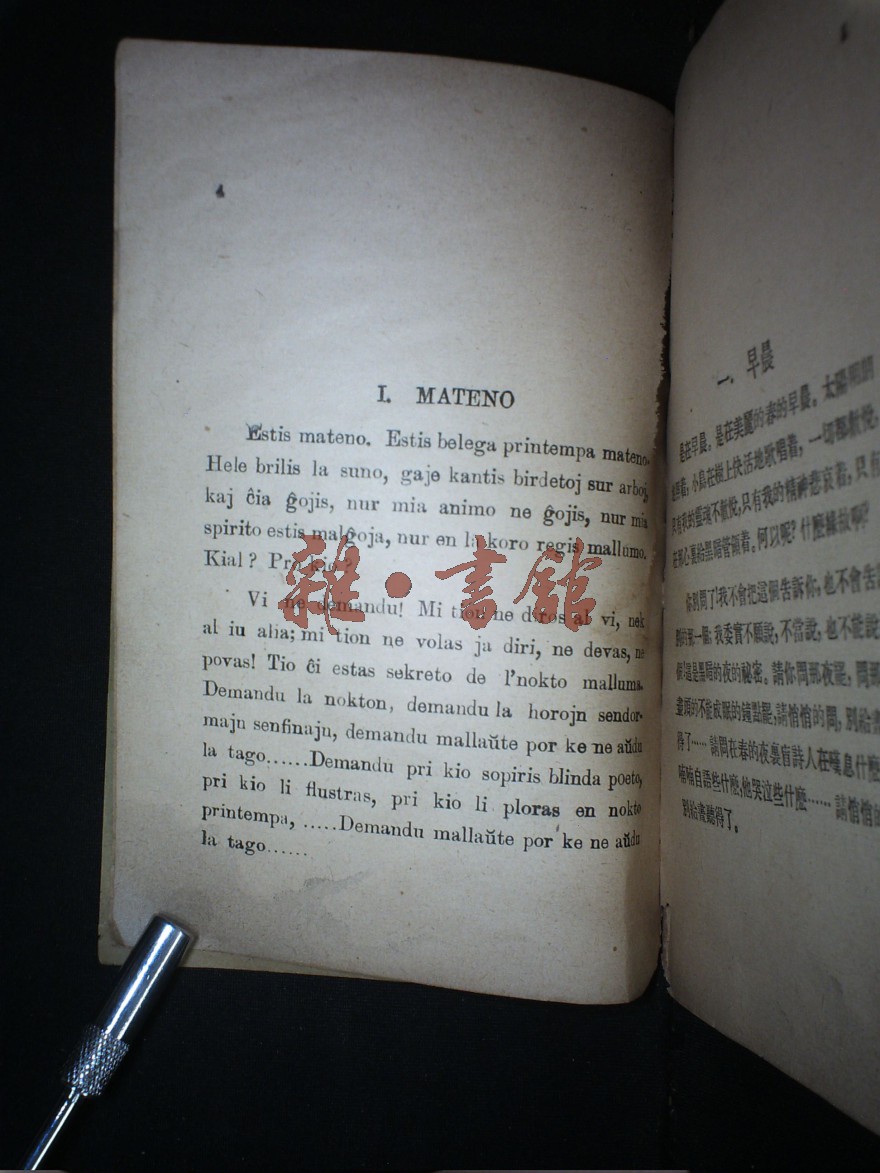 I. MATENO
Estis mateno. Estis belega printempa mateno.
Hele brilis la suno, gaje kantis birdetoj sur arboj,
kaj ĉia ĝojis, nur mia animo ne ĝojis, nur mia
spirito estis malĝoja, nur en la koro regis mallumo.
Kial? Pro kio?
Vi ne demandu! Mi tion ne diros al vi, nek
al iu alia; mi tion ne volas ja diri, ne devas, ne
povas! Tio ĉi estas sekreto de l'nokto malluma.
Demandu la nokton, demandu la horojn sendor-
majn senfinajn, demandu mallaŭte por ke ne aŭdu
la tago......Demandu pri kio sopiris blinda poeto,
pri kio li flustras, pri kio li ploras en nokto
printempa, .....Demandu mallaŭte por ke ne aŭdu
la tago......
雜·書館
一. 早晨
是在早晨。是在美麗的春的早晨。太陽明朗
照着，小鳥在樹上快活地歌唱着，一切都歡悅，
只有我的靈魂不歡悅，只有我的精神悲哀着，只有
在那心裏給黑暗管領着。何以呢？什麼緣故啊？
你別問了！我不會把這個告訴你，也不會告
別的那一個；我委實不願說，不當說，也不能說
這是黑暗的夜的祕密。請你問那夜罷，問那
盡頭的不能成眠的鐘點罷，請悄悄的問，別給晝
得了…… 請問在春的夜裏盲詩人在嘆息什麼
喃喃自語些什麼，他哭泣些什麼…… 請悄悄的
別給晝聽得了。